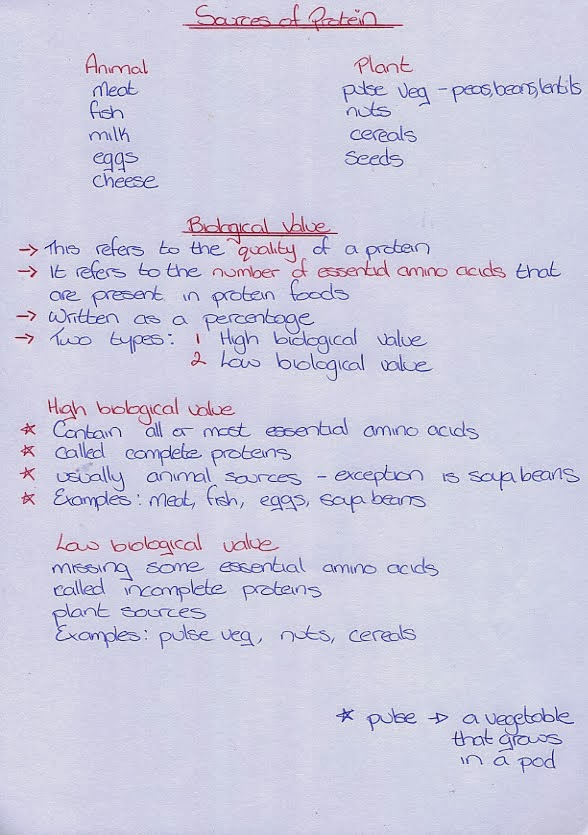 Sources of Protein
Animal Plant
meat pulse veg - peas, beans, lentils
fish nuts
milk cereals
eggs seeds
cheese
Biological Value
→ This refers to the quality of a protein
→ It refers to the number of essential amino acids that
are present in protein foods
→ Written as a percentage
→ Two types: 1 High biological value
2 Low biological value
High biological value
* Contain all or most essential amino acids
* called complete proteins
* usually animal sources - exception is soya beans
* Examples: meat, fish, eggs, soya beans
Low biological value
missing some essential amino acids
called incomplete proteins
plant sources
Examples: pulse veg, nuts, cereals
* pulse → a vegetable
that grows
in a pod